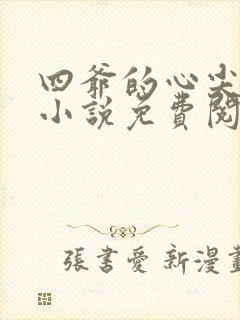 四爷的心尖
小説免費閱
張書愛 新漫畫